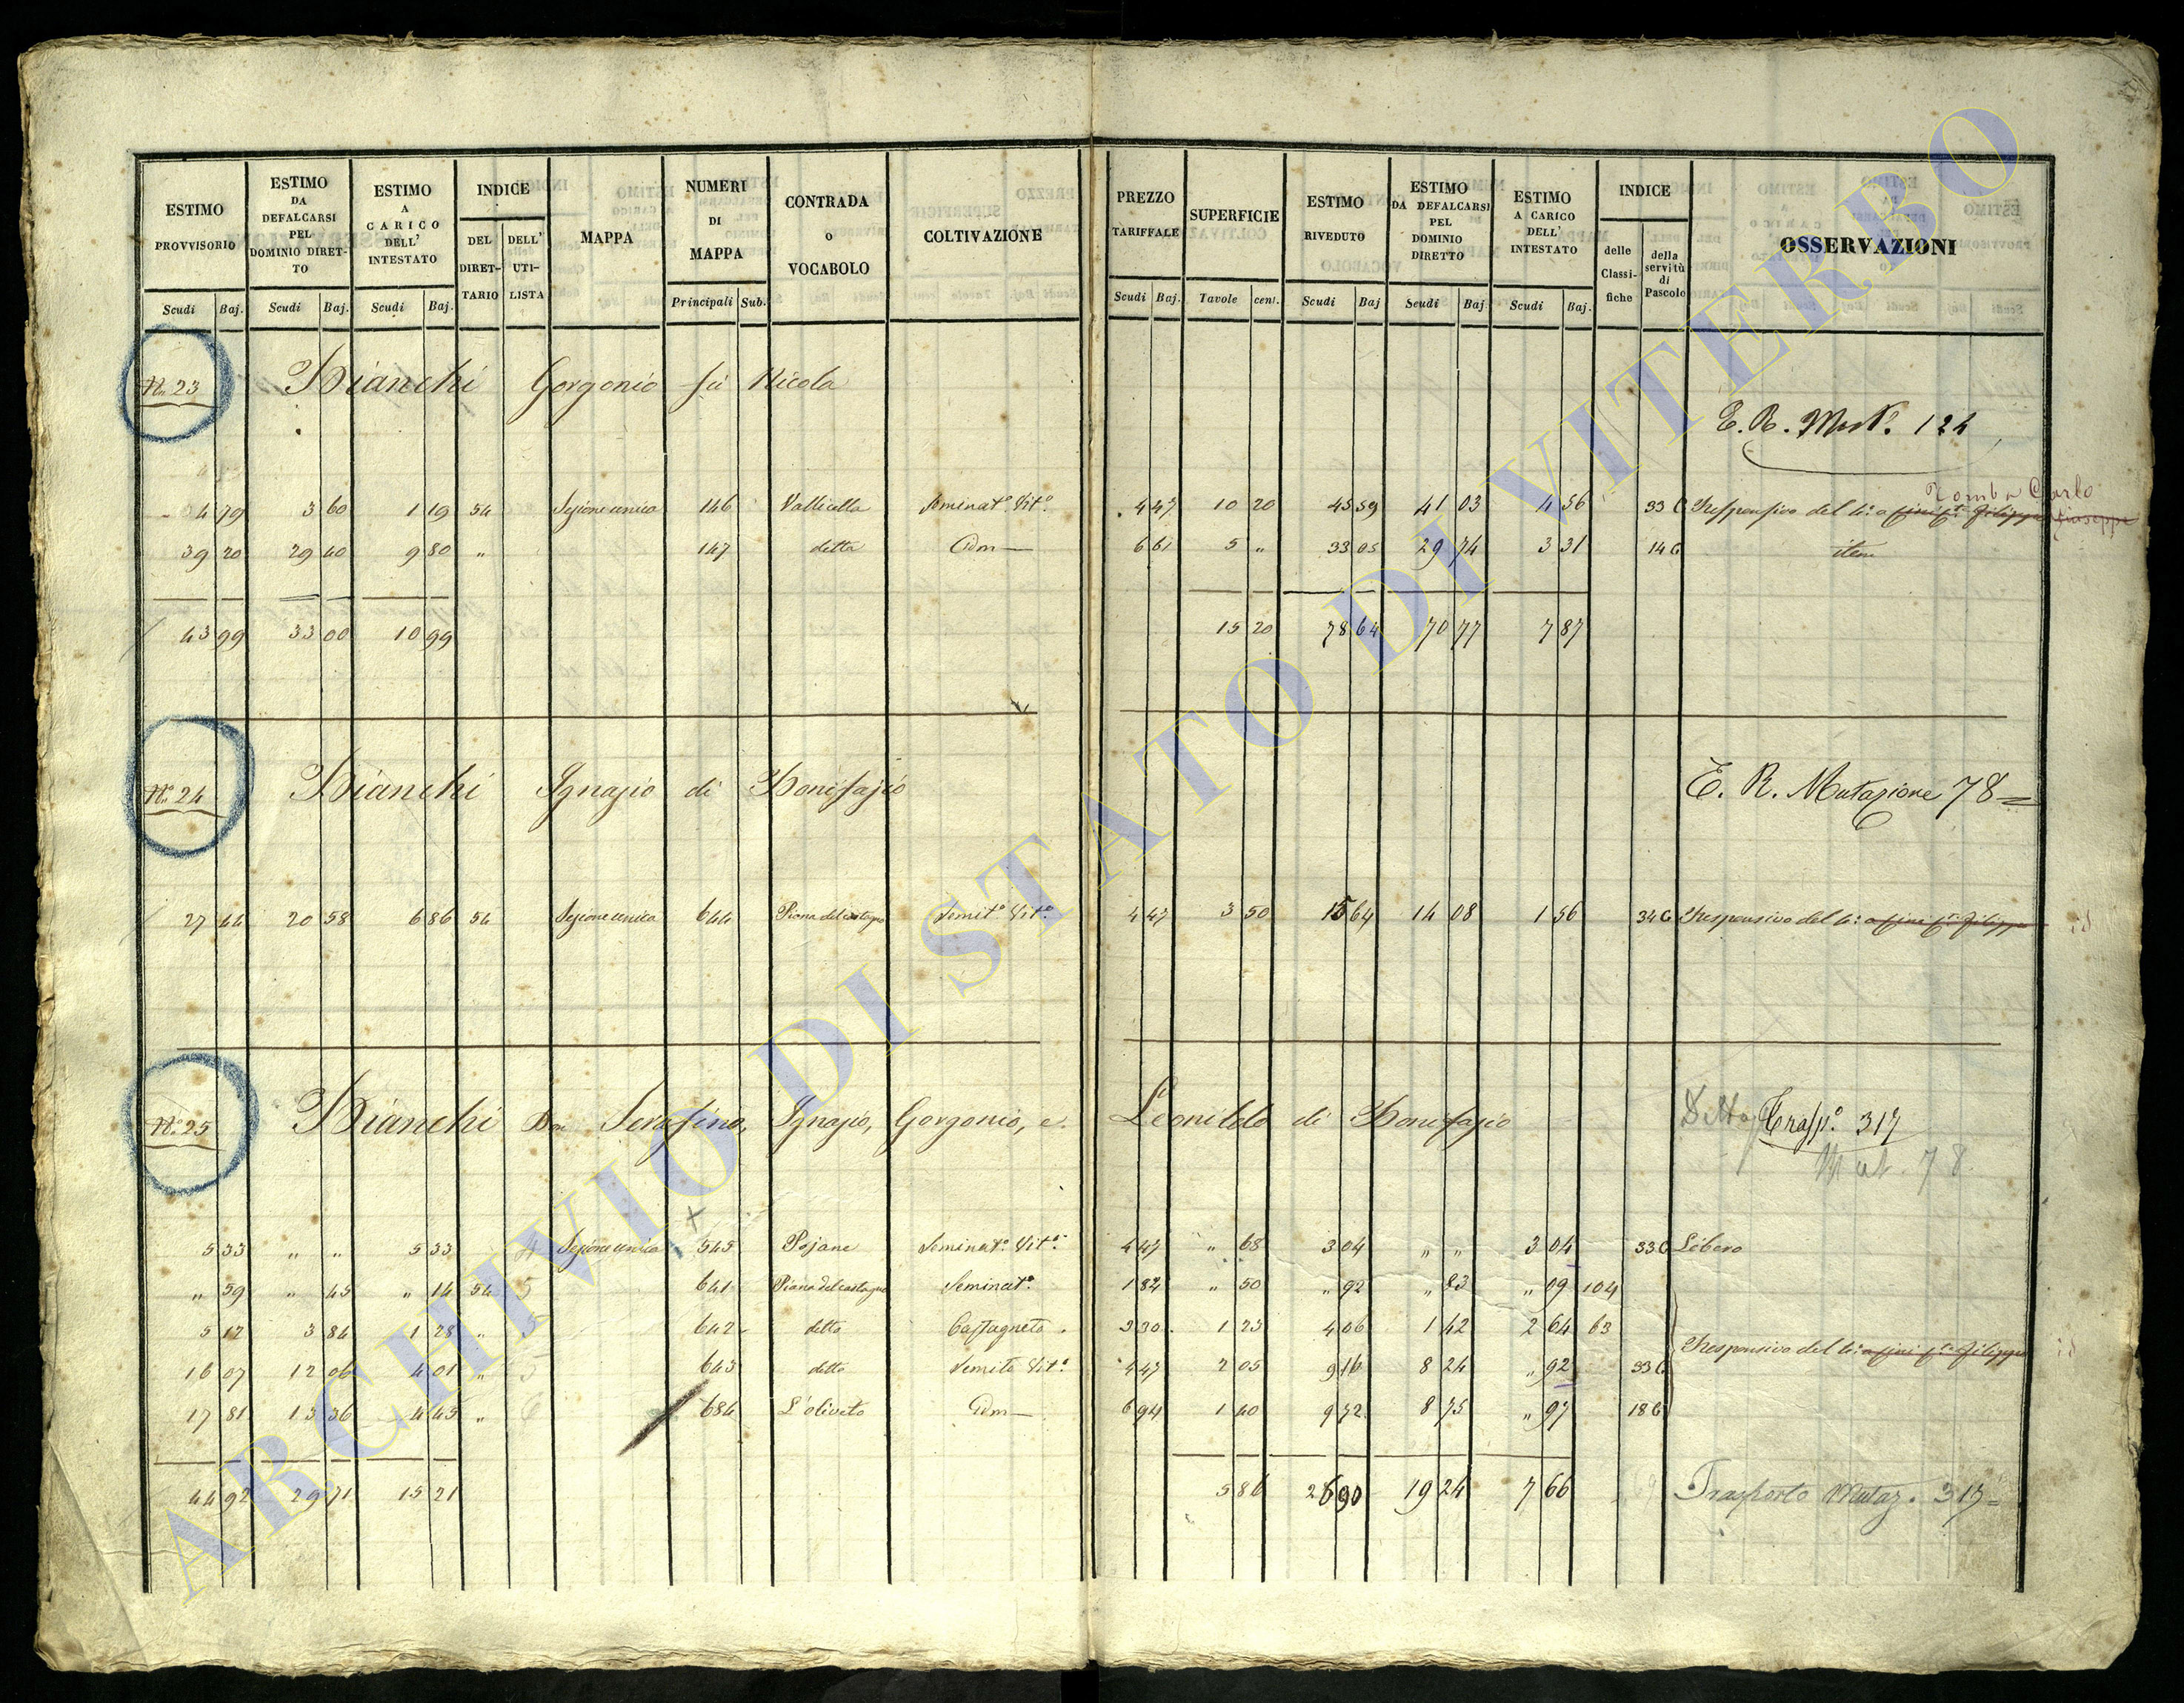 ESTIMO PROVVISORIO
ESTIMO DA DEFALCARSI PEL DOMINIO DIRETTO
ESTIMO A CARICO DELL' INTESTATO
INDICE
DEL DIRETTARIO
DELL' UTILISTA
MAPPA
NUMERI DI MAPPA
CONTRADA o VOCABOLO
COLTIVAZIONE
PREZZO TARIFFALE
SUPERFICIE
ESTIMO RIVEDUTO
ESTIMO DA DEFALCARSI PEL DOMINIO DIRETTO
ESTIMO A CARICO DELL' INTESTATO
INDICE
delle Classifiche
della servitù di Pascolo
OSSERVAZIONI
Scudi Baj. Scudi Baj. Scudi Baj. Principali Sub. Scudi Baj. Tavole cent. Scudi Baj Scudi Baj Scudi Baj.
N. 23 Bianchi Gorgonio fù Nicola
E. R. Mut. 124
Tomba Carlo
4 79 3 60 1 19 54 Sezione unica 146 Vallicella Seminat.º Vit.º 4 47 10 20 45 59 41 03 4 56 33 C Responsivo del 4º a Giuseppe
39 20 29 40 9 80 " 147 detta Idm 6 61 5 " 33 05 29 74 3 31 14 C item
43 99 33 00 10 99 15 20 78 64 70 77 7 87
Nº 24 Bianchi Ignazio di Bonifazio E. R. Mutazione 78
27 44 20 58 6 86 54 Sezione unica 644 Piana del castagno Semitº Vitº 4 47 3 50 15 64 14 08 1 56 34 C Responsivo del 4º id
Nº 25 Bianchi Don Serafino, Ignazio, Gorgonio, e Leonildo di Bonifazio Ditto Traspº 317
Mut. 78
5 33 " " 5 33 4 Sezione unica 545 Pojane Seminatº Vitº 4 47 " 68 3 04 " " 3 04 33 C Libero
" 59 " 45 " 14 54 5 641 Piana del castagno Seminatº 1 84 " 50 " 92 " 83 " 09 104
5 12 3 84 1 28 " 5 642 detto Castagneto 3 30 1 23 4 06 1 42 2 64 63
16 07 12 06 4 01 " 5 643 detto Semitº Vitº 4 47 2 05 9 16 8 24 " 92 33 C Responsivo del 4º id
17 81 13 36 4 45 " 6 684 L'oliveto Idm 6 94 1 40 9 72 8 75 " 97 18 C
44 92 29 71 15 21 5 86 26 90 19 24 7 66 Trasporto Mutaz. 317
ARCHIVIO DI STATO DI VITERBO